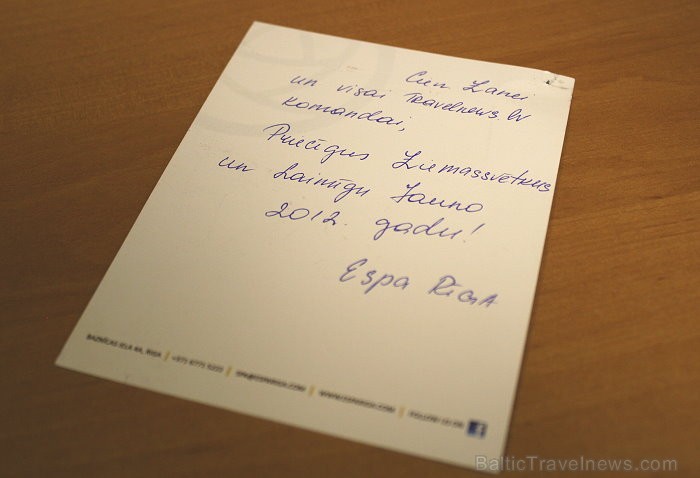 Cien. Lanei
un visai Travelnews.lv
komandai,
Priecīgus Ziemassvētkus
un Laimīgu Jauno
2012. gadu!
Espa RīgA
BAZNĪCAS IELA 4A, RIGA | +371 6771 5222 | SPA@ESPARIGA.COM | WWW.ESPARIGA.COM | FOLLOW US ON f
BalticTravelnews.com